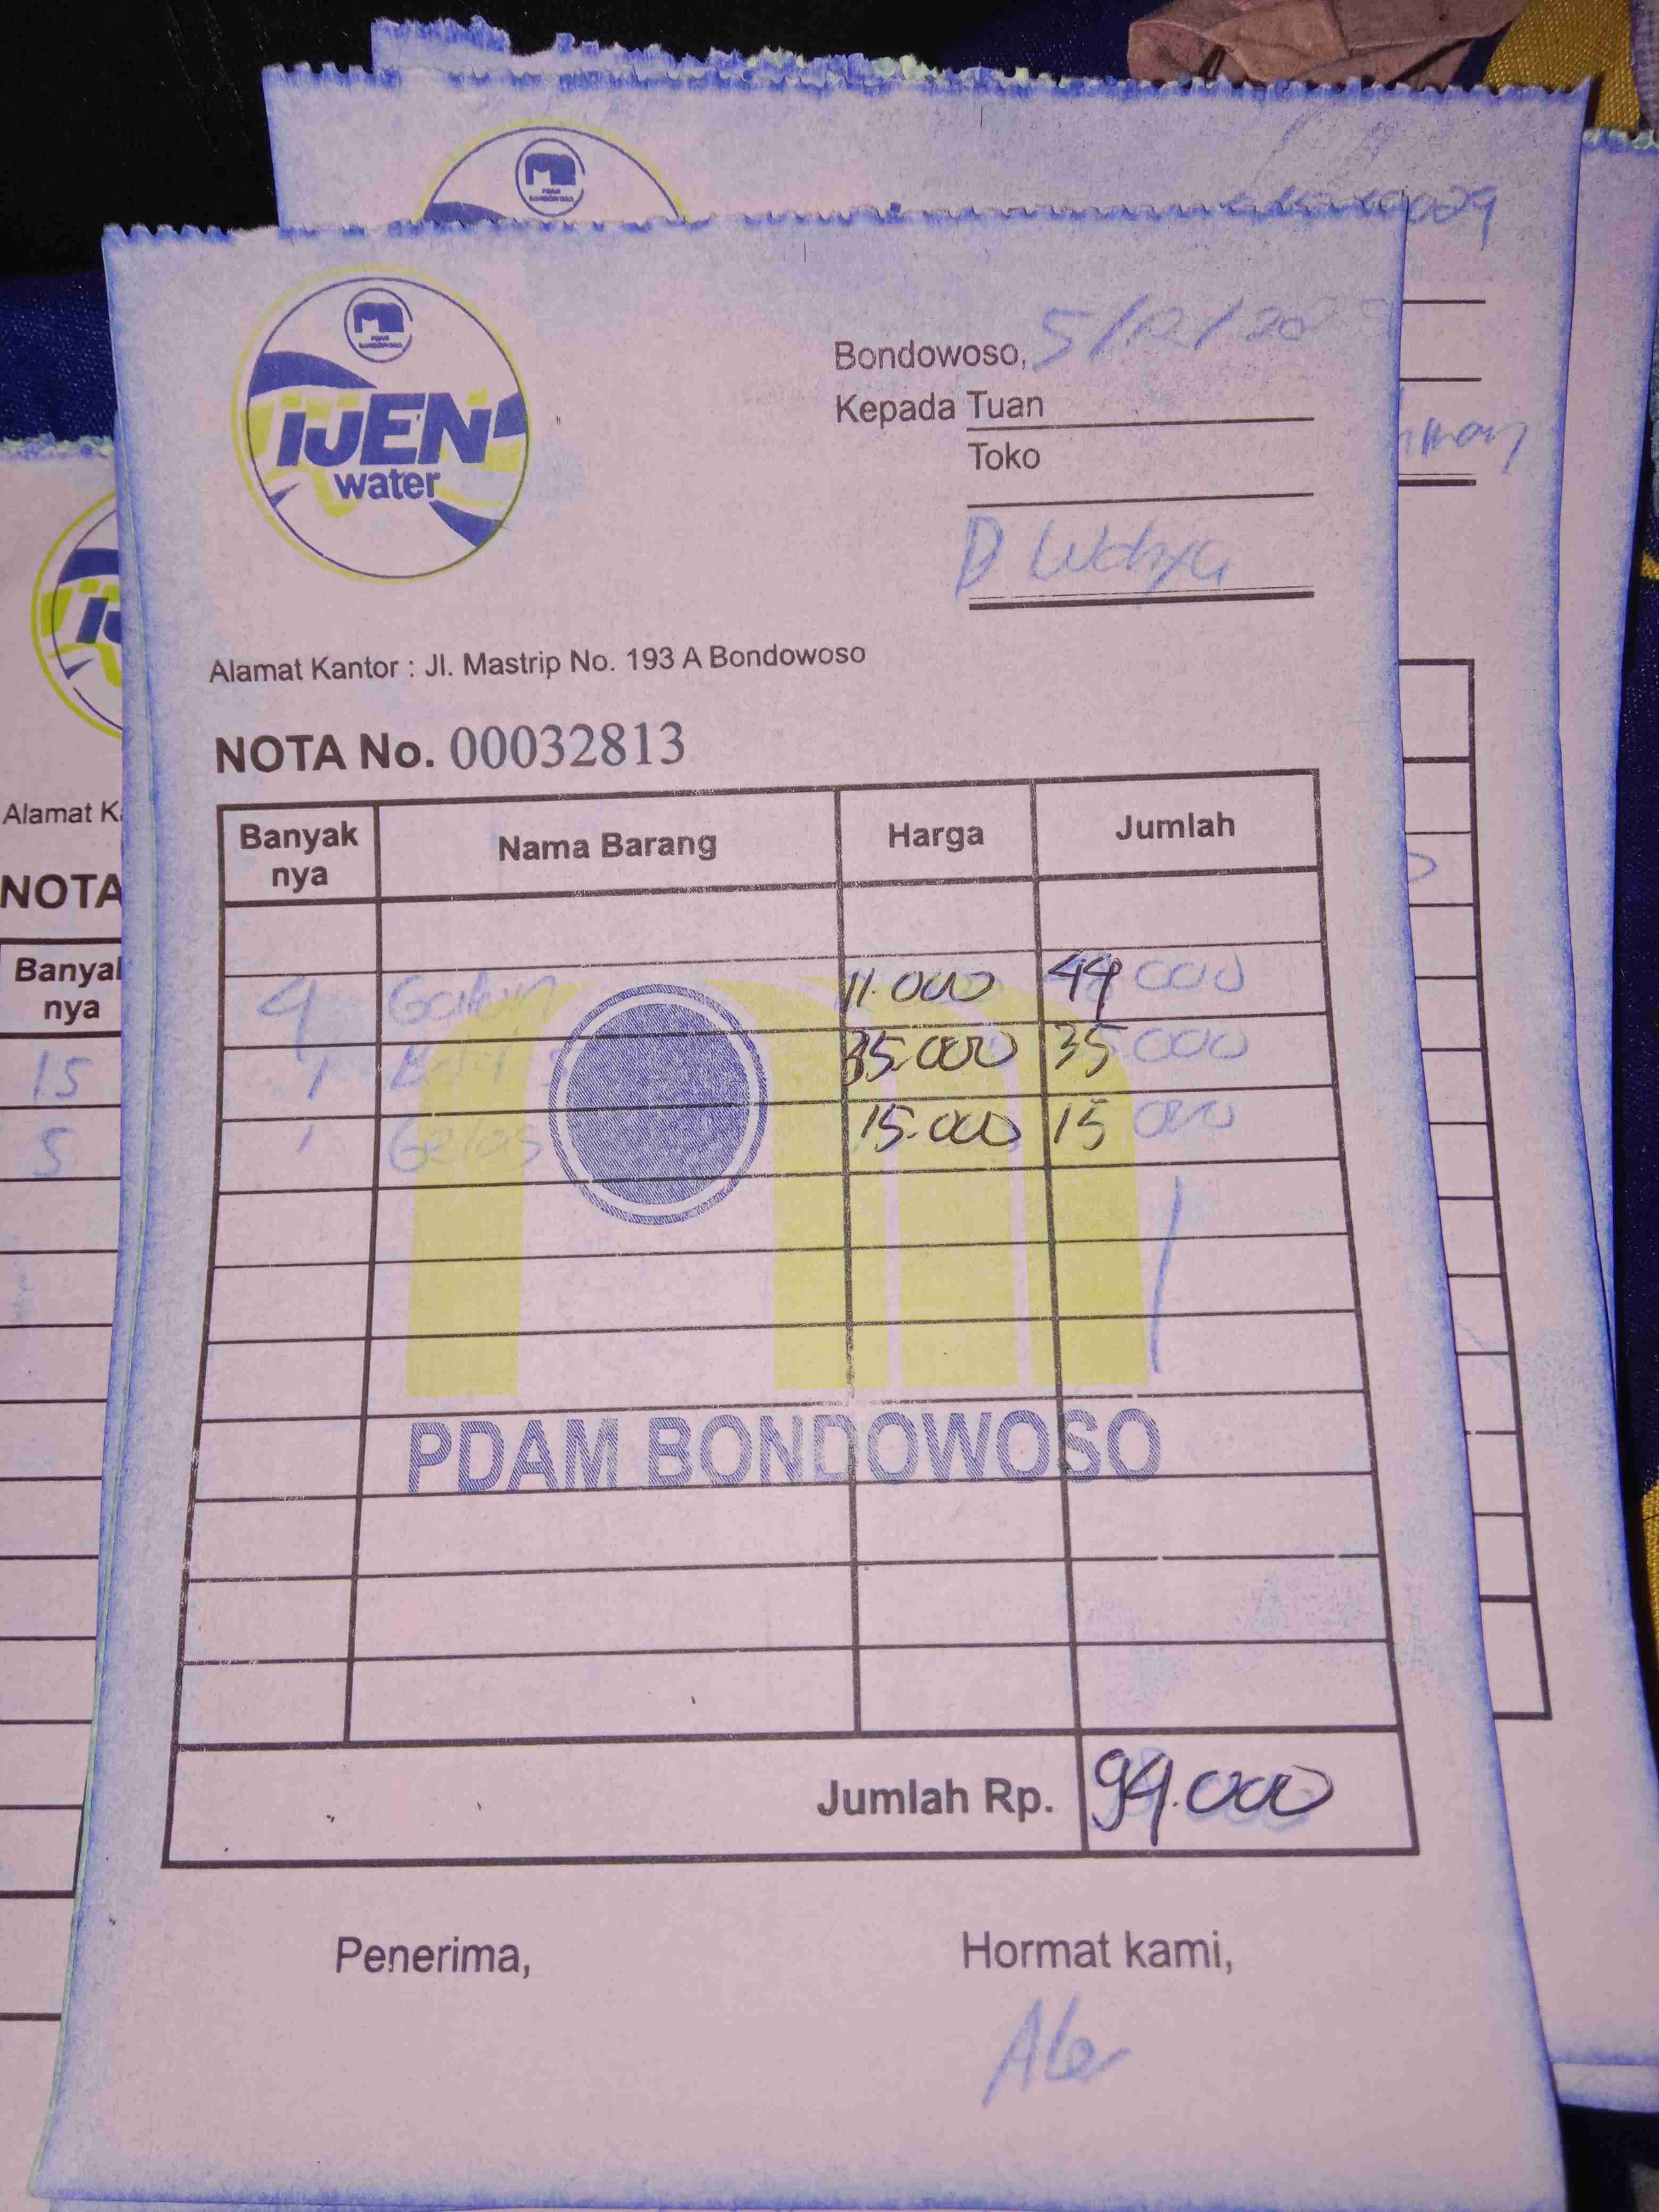 PDAM
BONDOWOSO
PDAM
BONDOWOSO
IJEN
water
Bondowoso, 5/12/20
Kepada Tuan
Toko
D Wahyu
Alamat Kantor : Jl. Mastrip No. 193 A Bondowoso
NOTA No. 00032813
Banyak nya Nama Barang Harga Jumlah
4 Galon 11.000 44 000
1 35.000 35 000
1 Gelas 15.000 15 000
PDAM BONDOWOSO
Jumlah Rp. 94.000
Penerima,
Hormat kami,
Alamat
NOTA
Banyak
nya
15
5